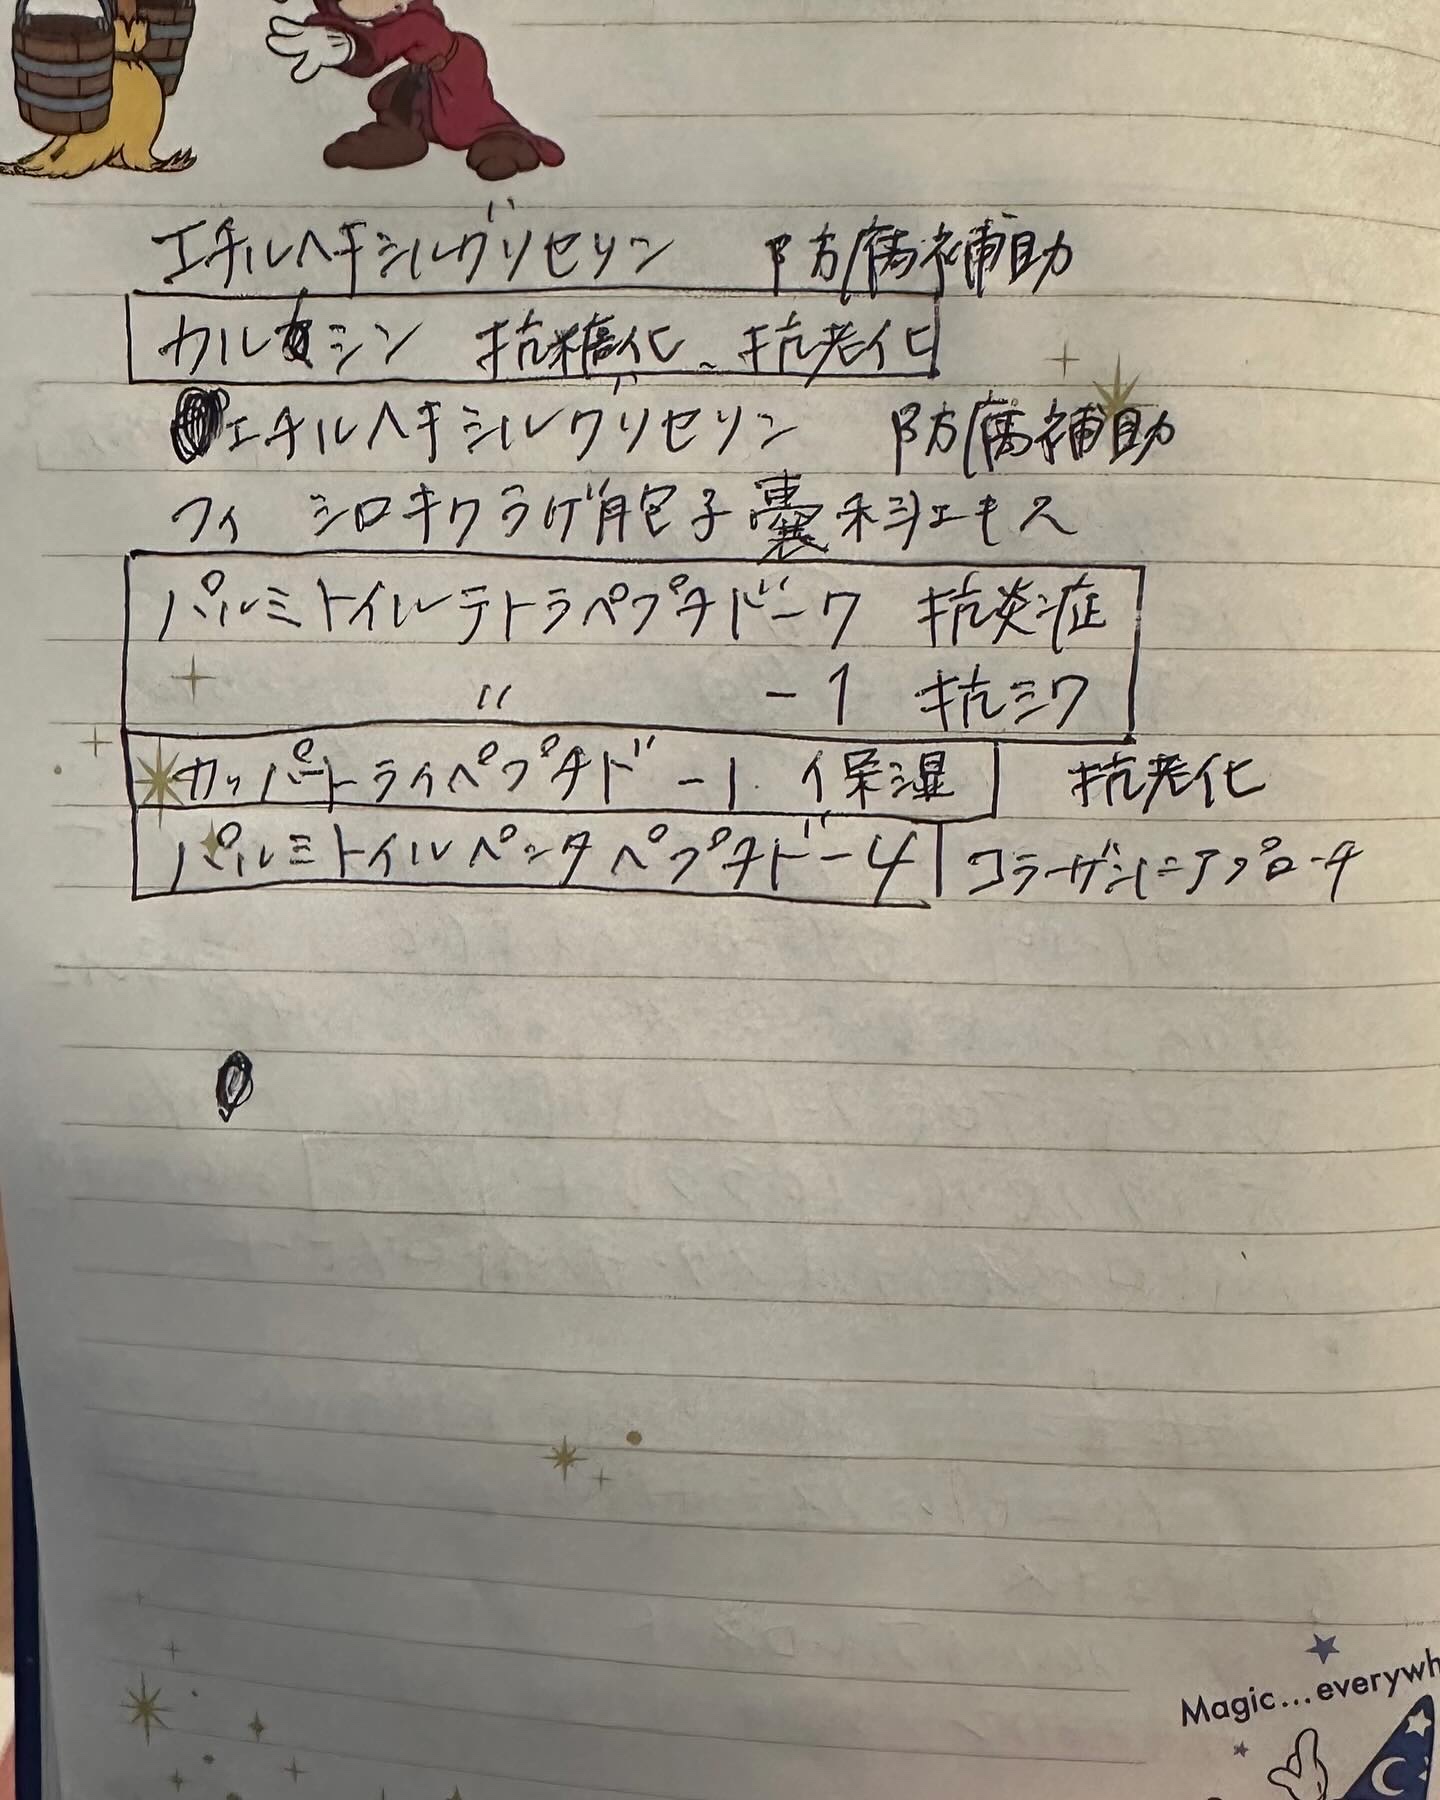 エチルヘキシルグリセリン 防腐補助
カルノシン 抗糖化、抗老化
エチルヘキシルグリセリン 防腐補助
フィ シロキクラゲ胞子嚢科エキス
パルミトイルテトラペプチドー7 抗炎症
〃 -1 抗シワ
カッパートライペプチド-1 保湿 抗老化
パルミトイルペンタペプチドー4 コラーゲンにアプローチ
Magic...everywh